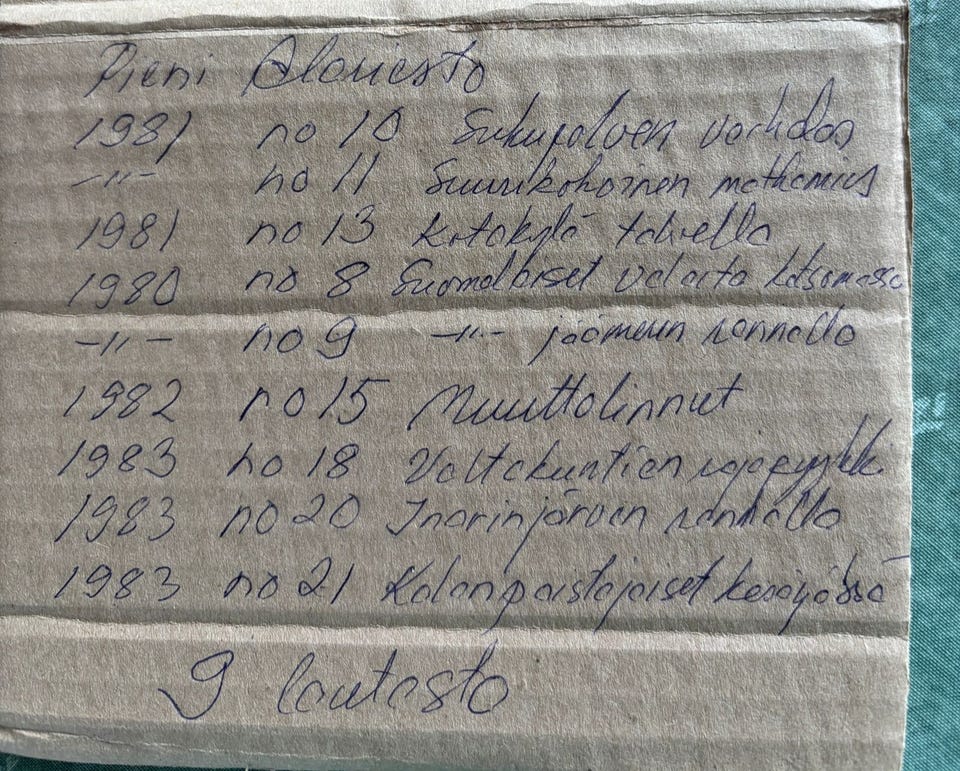 Pieni Alariesto
1981 no 10 Sukupolven vaihdos
-"- no 11 Suurikohoinen mathamies
1981 no 13 Kotakylä talvella
1980 no 8 Suomalaiset valasta katsomassa
-"- no 9 -"- jäämeren rannalla
1982 no 15 Muuttolinnut
1983 no 18 Valtakuntien rajapyykki
1983 no 20 Inarinjärven rannalla
1983 no 21 Kalanpaistajaiset kesäyössä
9 lautasta